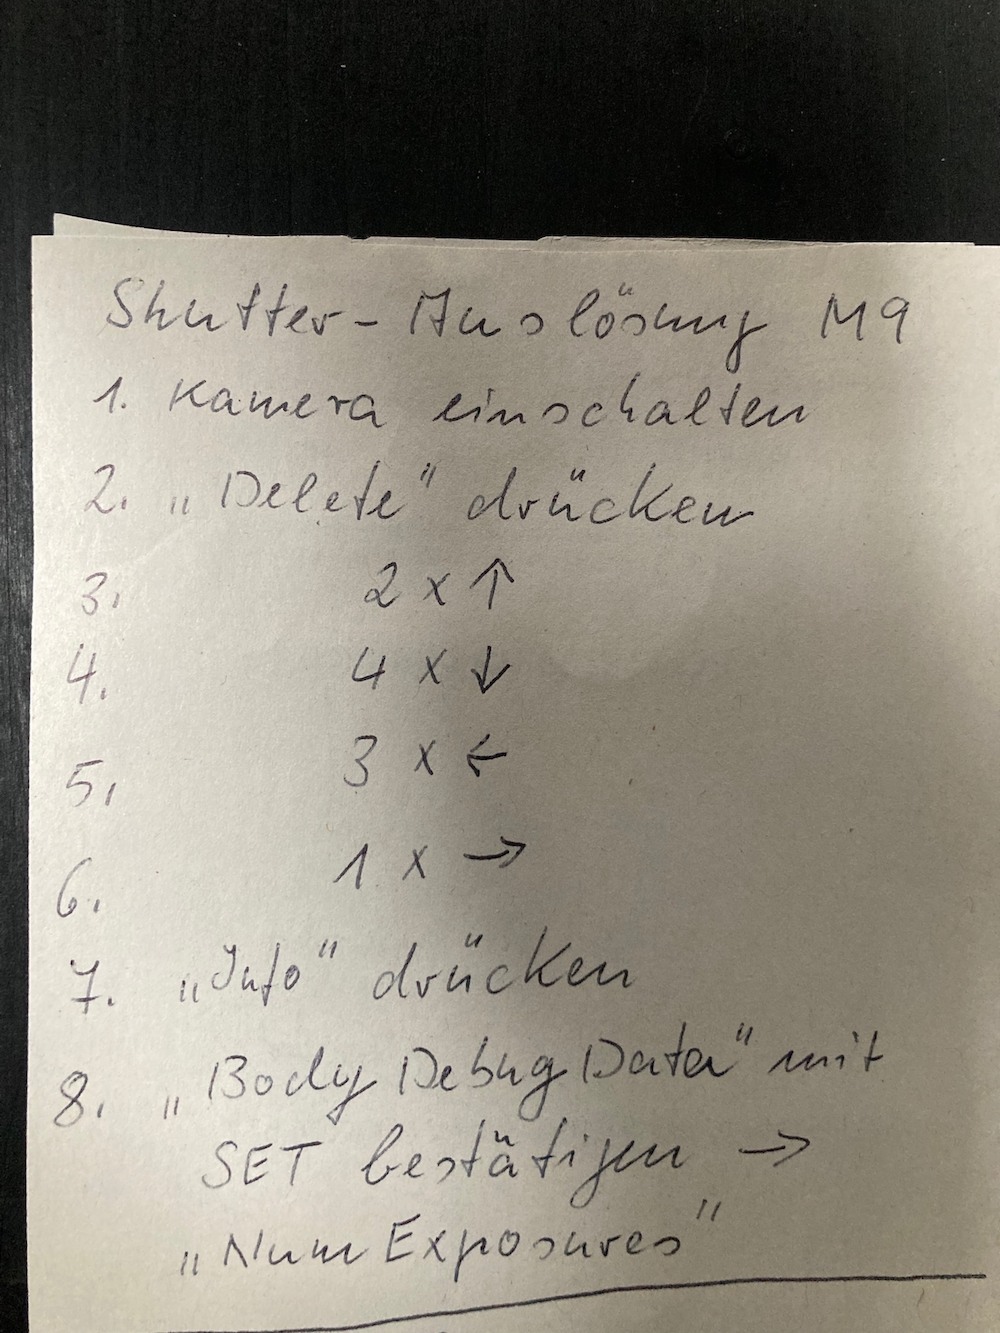 Shutter-Auslösung M9
1. Kamera einschalten
2. „Delete" drücken
3. 2 x ↑
4. 4 x ↓
5. 3 x ←
6. 1 x →
7. „Info" drücken
8. „Body Debug Data" mit
SET bestätigen →
„Num Exposures"